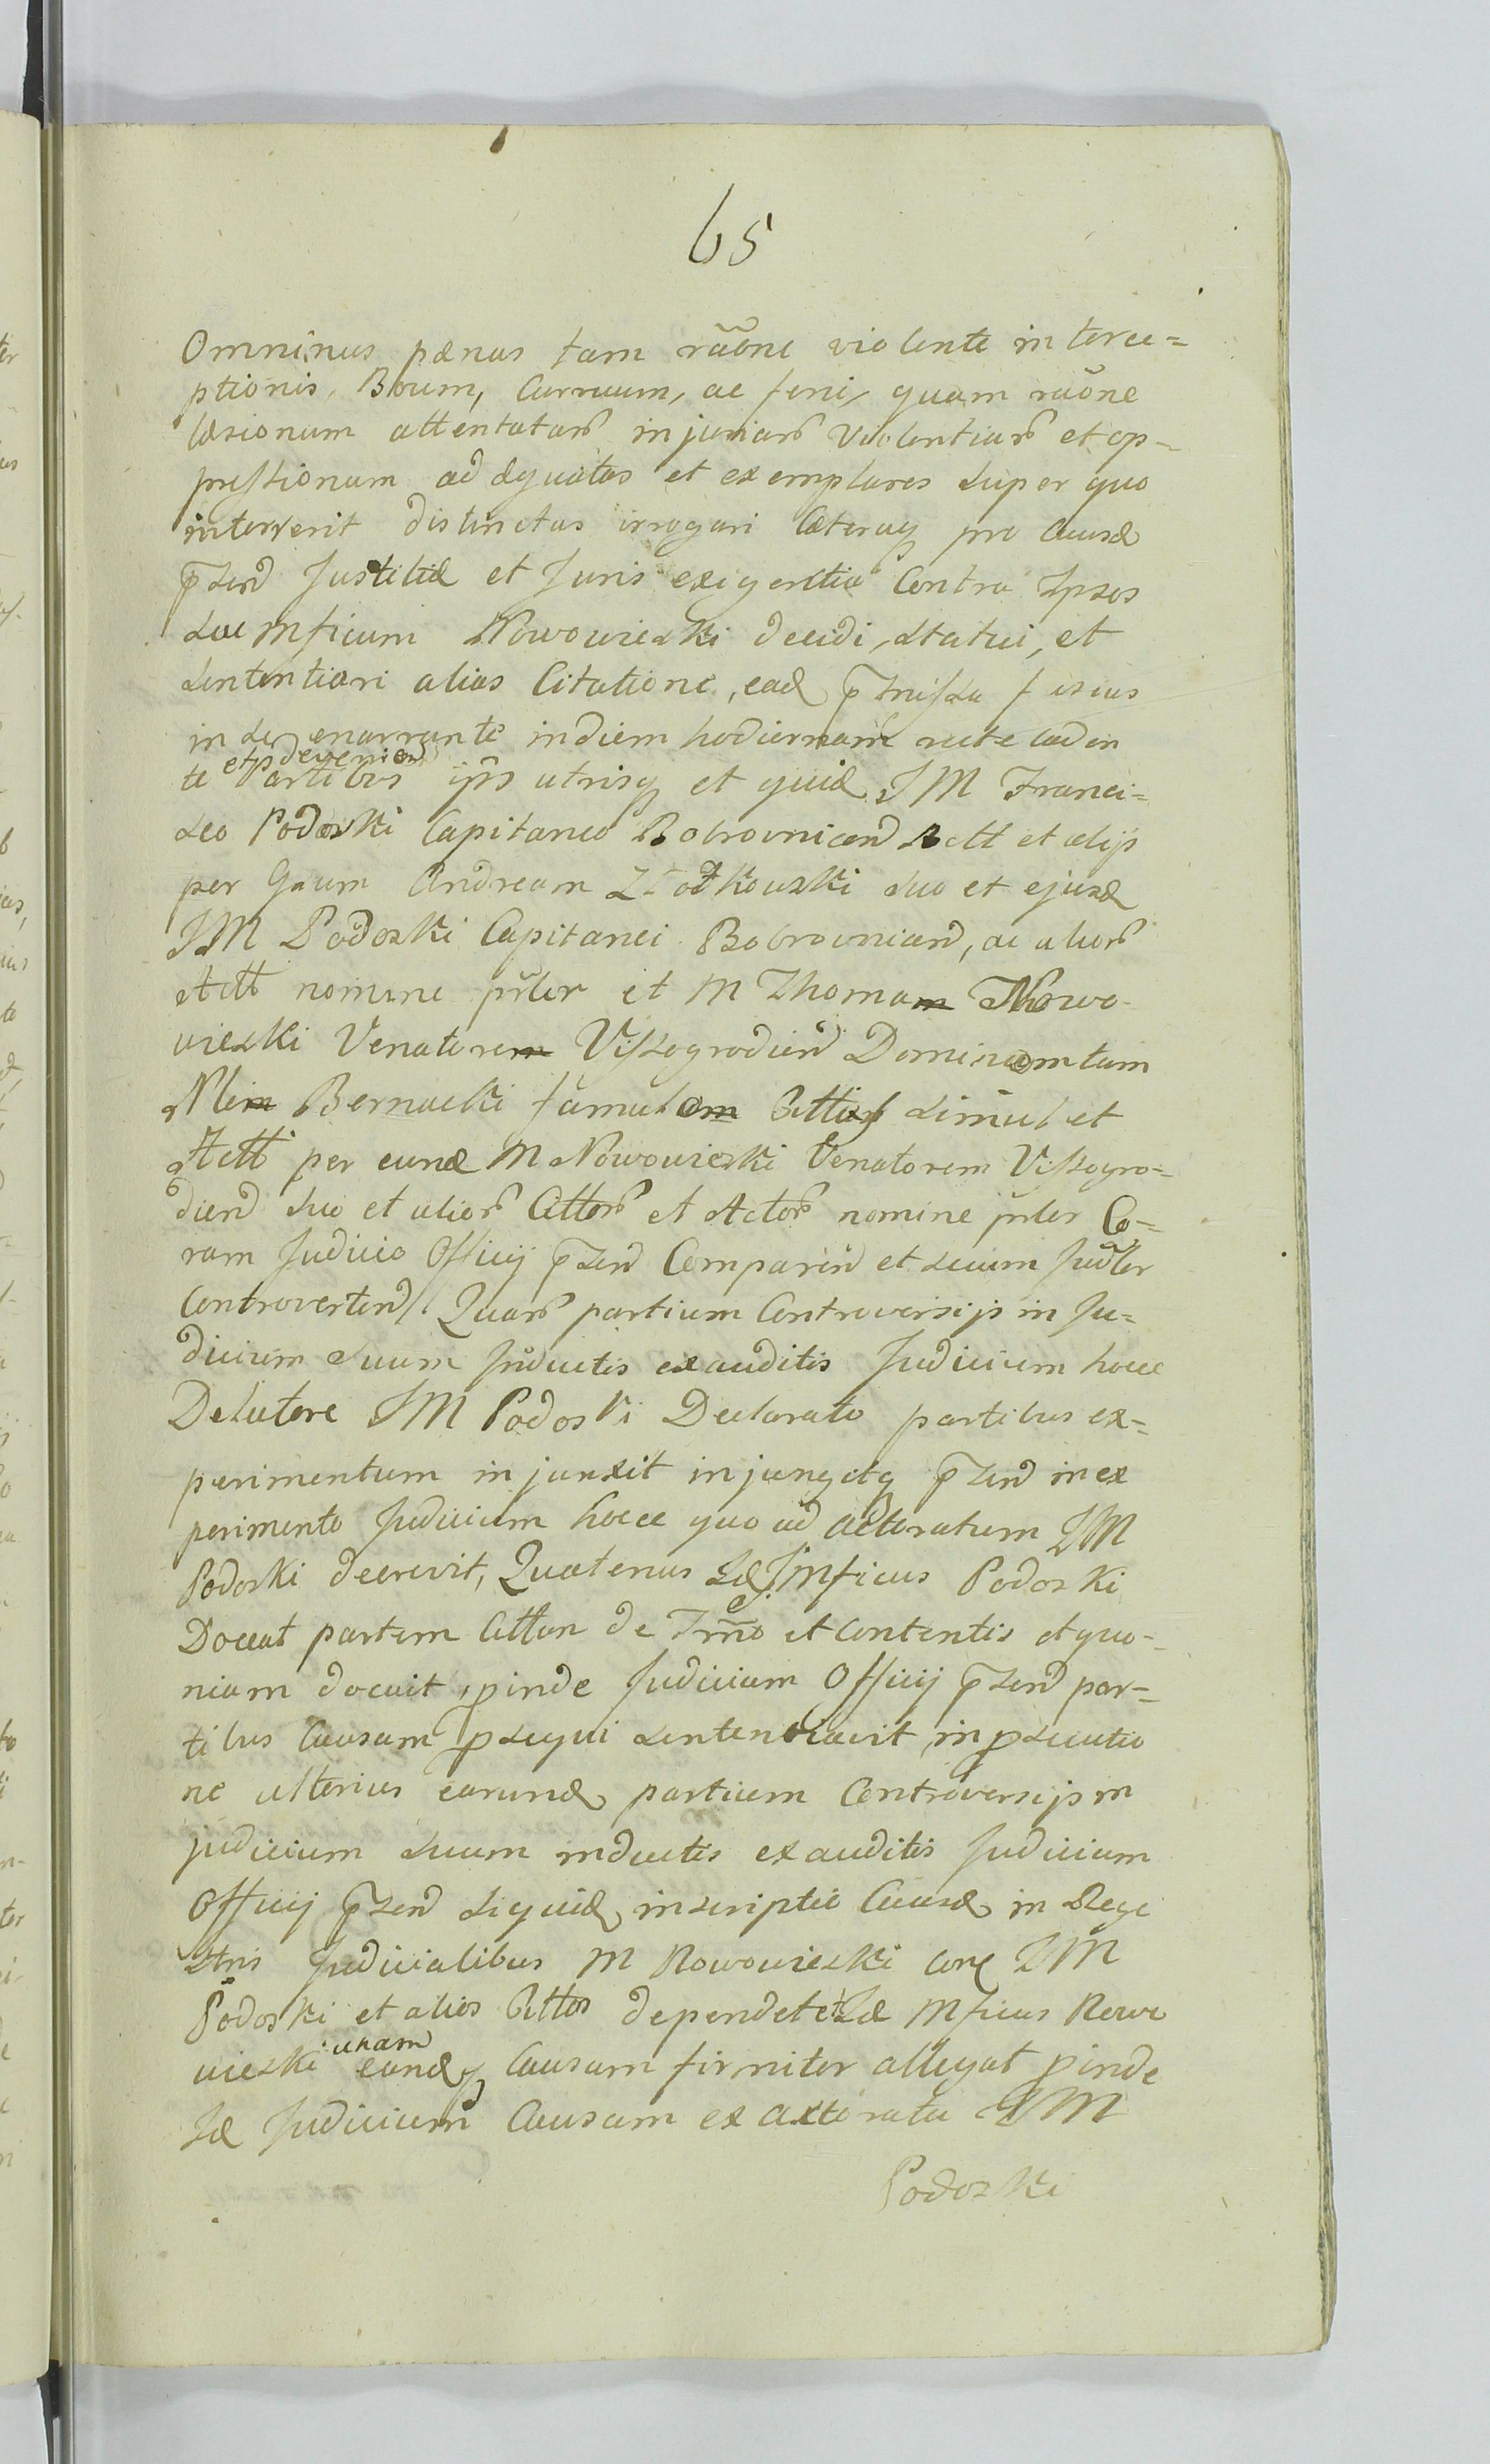 65
Omninus pænas tam raõne violente interce=
ptionis, Boum, Curruum, ac feni, quam raõne
læsionum attentatarũ injuriarũ Violentiarũ et op-
pressionum adæquatas et exemplares super quo
intererit distinctas irrogari Cæteraq pro Causæ
p̃sen Justitiæ et Juris exigentia Contra Ipsos
suc Mficum Nowowieski decidi, statui, et
sententiari alias Citatione, ead p̃missa fusius
in se enarrante indiem hodiernam recte caden
te et deveniend Partibus ip̃s utrisq et quid JM Franci=
sco Podoski Capitaneo Bobrovnicen Actt et alijs
per Gsum Andream Złotkowski suo et ejusd
JM Podoski Capitanei Bobrovnicen, ac aliorũ
Actt nomine p̃iler et M Thomam Nowo-
wieski Venatorem Vissogrodien Dominum tam
Nlem Bernacki famulum Cittos simul et
Actt per eund M Nowowieski Venatorem Vissogro=
dien suo et aliorũ Cittorũ et Actorũ nomine p̃iler Co=
ram Judicio Officij p̃sen Comparen et secum Jud̃ler
Controverten Quarũ partium Controversijs in Ju=
dicium Suum Inductis exauditis Judicium hocce
Delatore JM Podoski Declarato partibus ex=
perimentum injunxit injungitq p̃sen in ex
perimento Judicium hocce quo ad actoratum JM
Podoski decrevit, Quatenus Id JMficus Podoski
Doceat partem Cittan de Tm̃no et Contentis et quo-
niam docuit, pinde Judicium Officij p̃sen par=
tibus Causam psequi sententiavit, in psecutio
ne ulterius earund partium Controversijs in
judicium suum inductis exauditis Judicium
Officij p̃sen siquid inscriptio Causæ in Rege
stris Judicialibus M Nowowieski con JM
Podoski et alios Cittos dependet et Id Mficus Nowo
wieski unam eandq Causam firmiter allegat pinde
Id Judicium Causam ex actoratu JM
Podoski